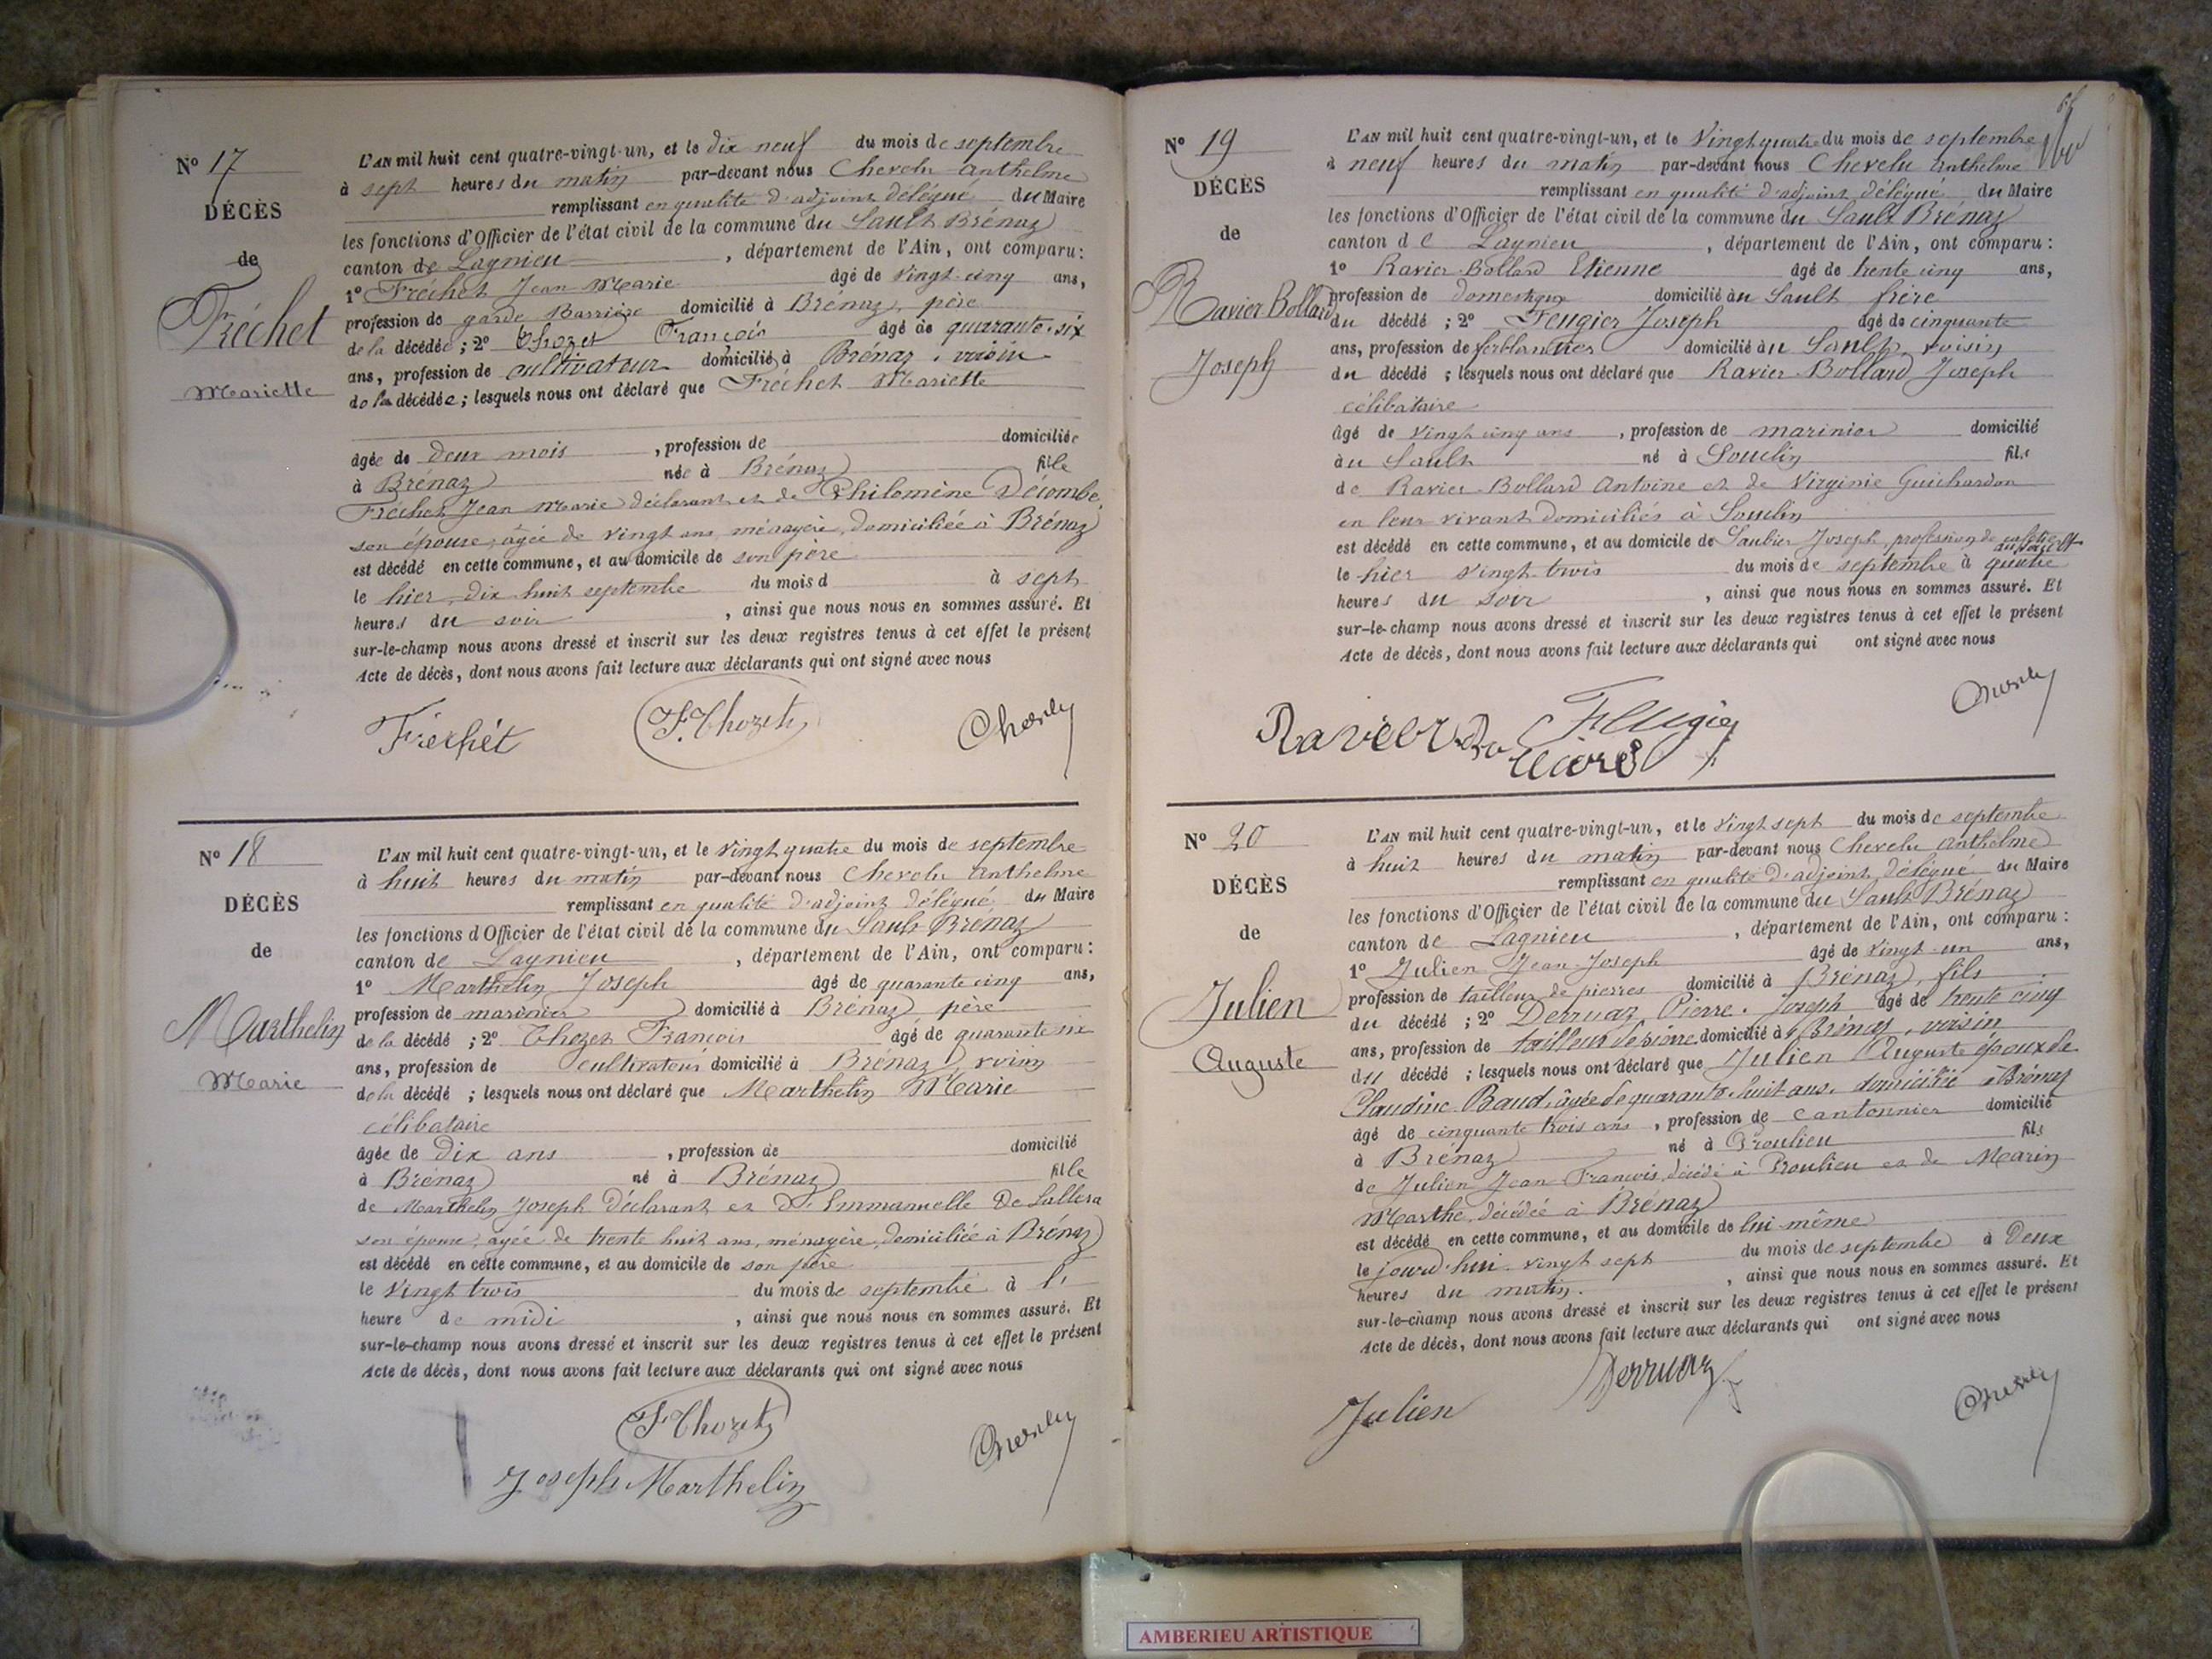 Nº 17
DÉCÈS
de
Fréchet
Mariette
L'AN mil huit cent quatre-vingt-un, et le dix neuf du mois de septembre
à sept heures du matin par-devant nous Chevelu Anthelme
remplissant en qualité d'adjoint délégué du Maire
les fonctions d'Officier de l'état civil de la commune du Sault Brénaz
canton de Lagnieu, département de l'Ain, ont comparu:
1º Fréchet Jean Marie âgé de vingt-cinq ans,
profession de garde Barrière domicilié à Brénaz, père
de la décédée; 2º Thozet François âgé de quarante-six
ans, profession de cultivateur domicilié à Brénaz, voisin
de la décédée; lesquels nous ont déclaré que Fréchet Mariette
âgée de deux mois, profession de domiciliée
à Brénaz née à Brénaz fille
Fréchet Jean Marie déclarant et de Philomène Décombe,
son épouse, âgée de vingt ans, ménagère, domiciliée à Brénaz
est décédé en cette commune, et au domicile de son père
le hier, dix huit septembre du mois d à sept
heures du soir, ainsi que nous nous en sommes assuré. Et
sur-le-champ nous avons dressé et inscrit sur les deux registres tenus à cet effet le présent
Acte de décès, dont nous avons fait lecture aux déclarants qui ont signé avec nous
Fréchet F. Thozet Chevelu
Nº 18
DÉCÈS
de
Marthelin
Marie
L'AN mil huit cent quatre-vingt-un, et le vingt quatre du mois de septembre
à huit heures du matin par-devant nous Chevelu Anthelme
remplissant en qualité d'adjoint délégué du Maire
les fonctions d'Officier de l'état civil de la commune du Sault Brénaz
canton de Lagnieu, département de l'Ain, ont comparu:
1º Marthelin Joseph âgé de quarante cinq ans,
profession de marinier domicilié à Brénaz, père
de la décédé; 2º Thozet François âgé de quarante six
ans, profession de cultivateur domicilié à Brénaz, voisin
de la décédé; lesquels nous ont déclaré que Marthelin Marie
célibataire
âgée de dix ans, profession de domicilié
à Brénaz né à Brénaz fille
de Marthelin Joseph déclarant et d'Emmanuelle De
son épouse, agée de trente huit ans, ménagère, domiciliée à Brénaz
est décédé en cette commune, et au domicile de son père
le vingt trois du mois de septembre à l'
heure de midi, ainsi que nous nous en sommes assuré. Et
sur-le-champ nous avons dressé et inscrit sur les deux registres tenus à cet effet le présent
Acte de décès, dont nous avons fait lecture aux déclarants qui ont signé avec nous
F. Thozet Chevelu
Joseph Marthelin
Nº 19
DÉCÈS
de
Ravier Bollard
Joseph
L'AN mil huit cent quatre-vingt-un, et le vingt quatre du mois de septembre
à neuf heures du matin par-devant nous Chevelu Anthelme
remplissant en qualité d'adjoint délégué du Maire
les fonctions d'Officier de l'état civil de la commune du Sault Brénaz
canton de Lagnieu, département de l'Ain, ont comparu:
1º Ravier-Bollard Etienne âgé de trente cinq ans,
profession de domestique domicilié au Sault frère
du décédé; 2º Feugier Joseph âgé de cinquante
ans, profession de ferblantier domicilié au Sault, voisin
du décédé; lesquels nous ont déclaré que Ravier-Bollard Joseph
célibataire
âgé de vingt cinq ans, profession de marinier domicilié
au Sault né à Souclin fils
de Ravier-Bollard Antoine et de Virginie Guichardon
en leur vivant domiciliés à Souclin
est décédé en cette commune, et au domicile de Saubier Joseph, profession de au Sault
le hier vingt-trois du mois de septembre à quatre
heures du soir, ainsi que nous nous en sommes assuré. Et
sur-le-champ nous avons dressé et inscrit sur les deux registres tenus à cet effet le présent
Acte de décès, dont nous avons fait lecture aux déclarants qui ont signé avec nous
Ravier Feugier Chevelu
Nº 20
DÉCÈS
de
Julien
Auguste
L'AN mil huit cent quatre-vingt-un, et le vingt sept du mois de septembre
à huit heures du matin par-devant nous Chevelu Anthelme
remplissant en qualité d'adjoint délégué du Maire
les fonctions d'Officier de l'état civil de la commune du Sault Brénaz
canton de Lagnieu, département de l'Ain, ont comparu:
1º Julien Jean-Joseph âgé de vingt-un ans,
profession de tailleur de pierres domicilié à Brénaz, fils
du décédé; 2º Derruaz Pierre-Joseph âgé de trente cinq
ans, profession de tailleur de pierre domicilié à Brénaz, voisin
du décédé; lesquels nous ont déclaré que Julien Auguste époux de
Claudine Baud, âgée de quarante-huit ans, domiciliée à Brénaz
âgé de cinquante trois ans, profession de cantonnier domicilié
à Brénaz né à Proulieu fils
de Julien Jean François décédé à Proulieu et de Marin
Marthe, décédée à Brénaz
est décédé en cette commune, et au domicile de lui-même
le jourd'hui vingt sept du mois de septembre à deux
heures du matin, ainsi que nous nous en sommes assuré. Et
sur-le-champ nous avons dressé et inscrit sur les deux registres tenus à cet effet le présent
Acte de décès, dont nous avons fait lecture aux déclarants qui ont signé avec nous
Julien Derruaz Chevelu
AMBERIEU ARTISTIQUE